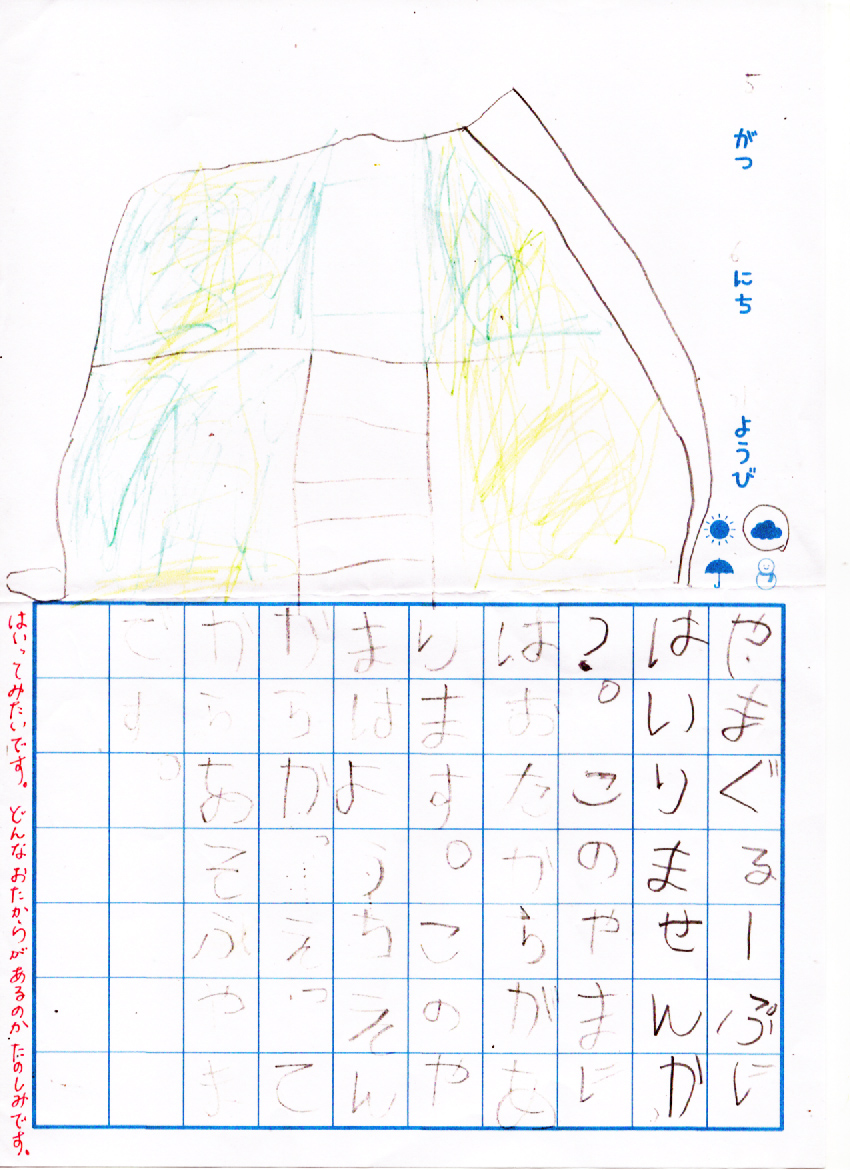 5 がつ 6 にち ようび
やまぐるーぷに
はいりませんか
?。このやまに
はおたからがあ
ります。このや
まはようちえん
がらがえって
からあそぶやま
です。
はいってみたいです。 どんなおたからがあるのか たのしみです。